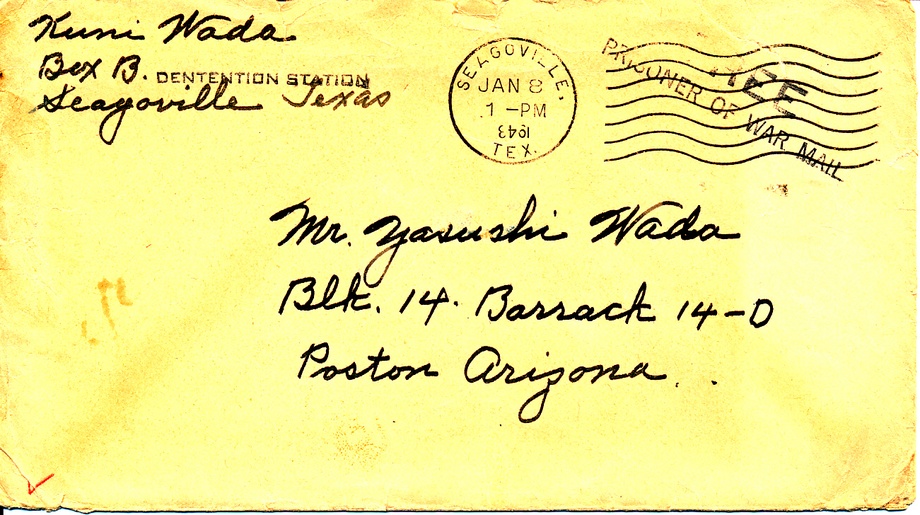 Kuni Wada
Box B. DENTENTION STATION
Seagoville Texas
SEAGOVILLE,
JAN 8
1 -PM
1943
TEX.
PRISONER OF WAR MAIL
Mr. Yasushi Wada
Blk. 14. Barrack 14-D
Poston Arizona.